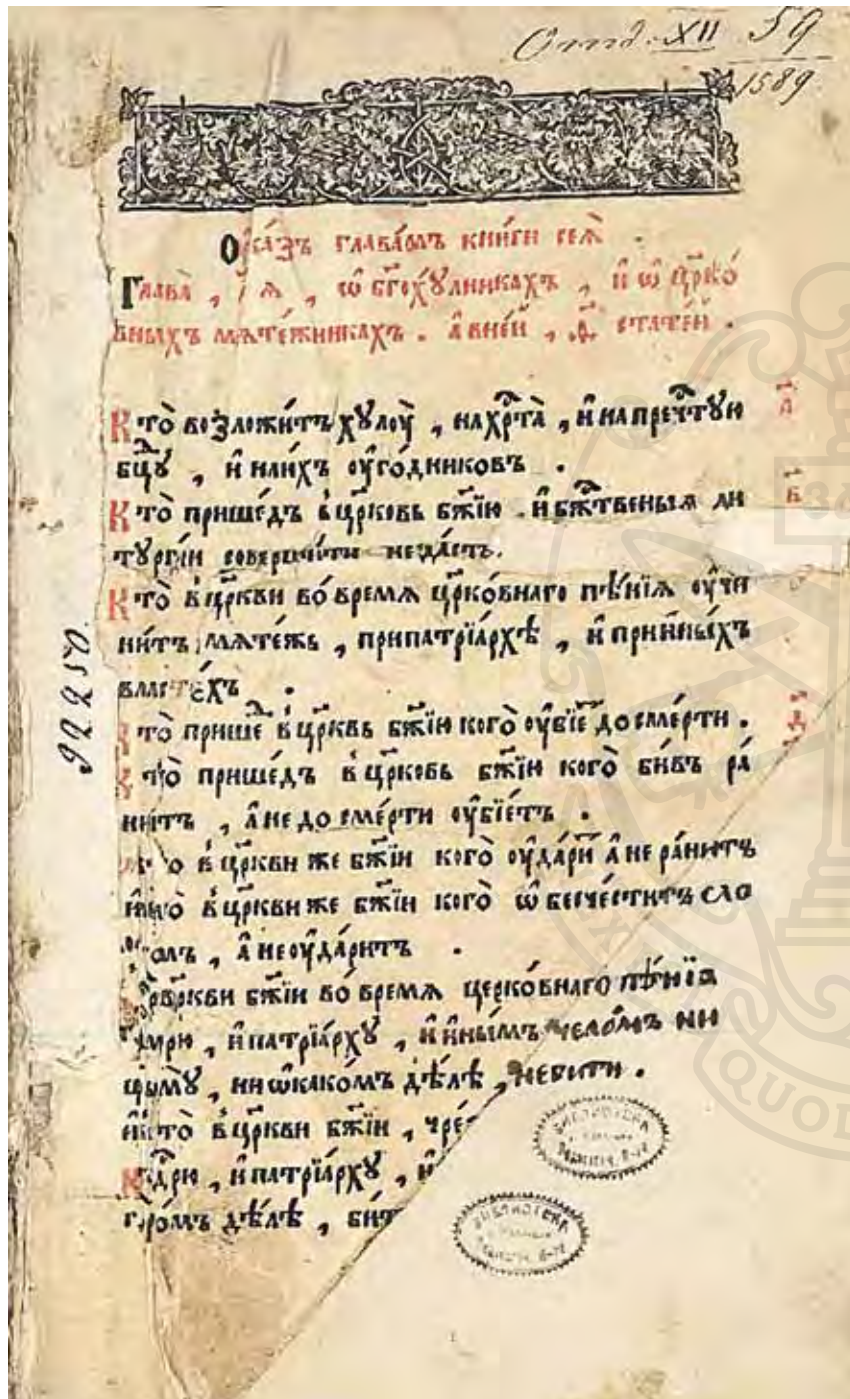 Отд. XII 59
1589
Ѹка́зъ глава́мъ кни́ги сея̀ .
Глава̀ , а҃ я , ѡ҆ бг҃охꙋ́лникахъ , и҆ ѡ҆ цр҃ко́
вныхъ мѧте́жникахъ . а҆ вне́й , ѳ҃ стате́й .
Кто̀ возложи́тъ хꙋлоу̀ , на хрⷭ҇та̀ , и҆ на пречⷭ҇тꙋю
бцⷣꙋ , и҆ наи́хъ оу҆го́дниковъ .
а҃
Кто̀ прише́дъ в цр҃ковь бж҃їю . и҆ бжⷭ҇твеныѧ ли
тꙋргі́и соверши́ти не да́стъ.
в҃
Кто̀ в цр҃кви во́ времѧ цр҃ко́внаго пѣ́нїѧ оу҆чи
ни́тъ мѧте́жь , при патрїа́рхѣ , и҆ при и҆ны́хъ
власте́хъ .
Кто̀ прише́ⷣ в цр҃квь бж҃їю кого̀ оу҆бїе́ⷮ до сме́рти .
Кто̀ прише́дъ в цр҃ковь бж҃їю кого̀ би́въ ра́
ни́тъ , а҆ не до сме́рти оу҆бїе́тъ .
в цр҃кви же бж҃їи кого̀ оу҆да́риⷮ а҆ не ра́нитъ
в цр҃кви же бж҃їи кого̀ ѡ҆бесче́ститъ сло
а҆ не оу҆да́ритъ .
бж҃їи во́ времѧ церко́внаго пѣ́нїѧ
и҆ патрїа́рхꙋ , и҆ и҆ны́мъ чело́мъ ни
ни ѡ҆ како́мъ дѣ́лѣ , не бити .
в цр҃кви бж҃їи , чре́
и҆ патрїа́рхꙋ , и҆
дѣ́лѣ , бит
92250.
БИБЛИОТЕКА
БИБЛИОТЕКА
QUOD